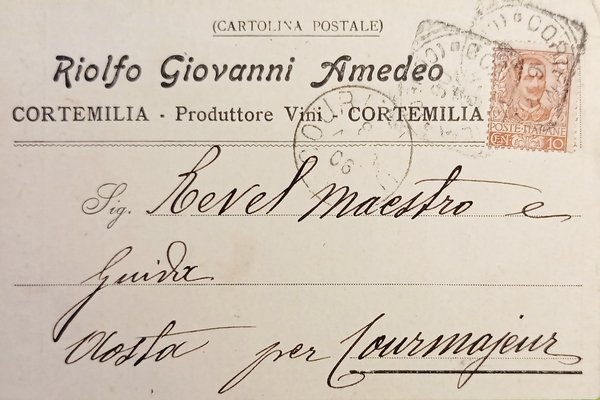 (CARTOLINA POSTALE)
Riolfo Giovanni Amedeo
CORTEMILIA - Produttore Vini - CORTEMILIA
POSTE ITALIANE
CENT. 10
Sig. Revel Maestro e
Guida
Aosta per Courmajeur